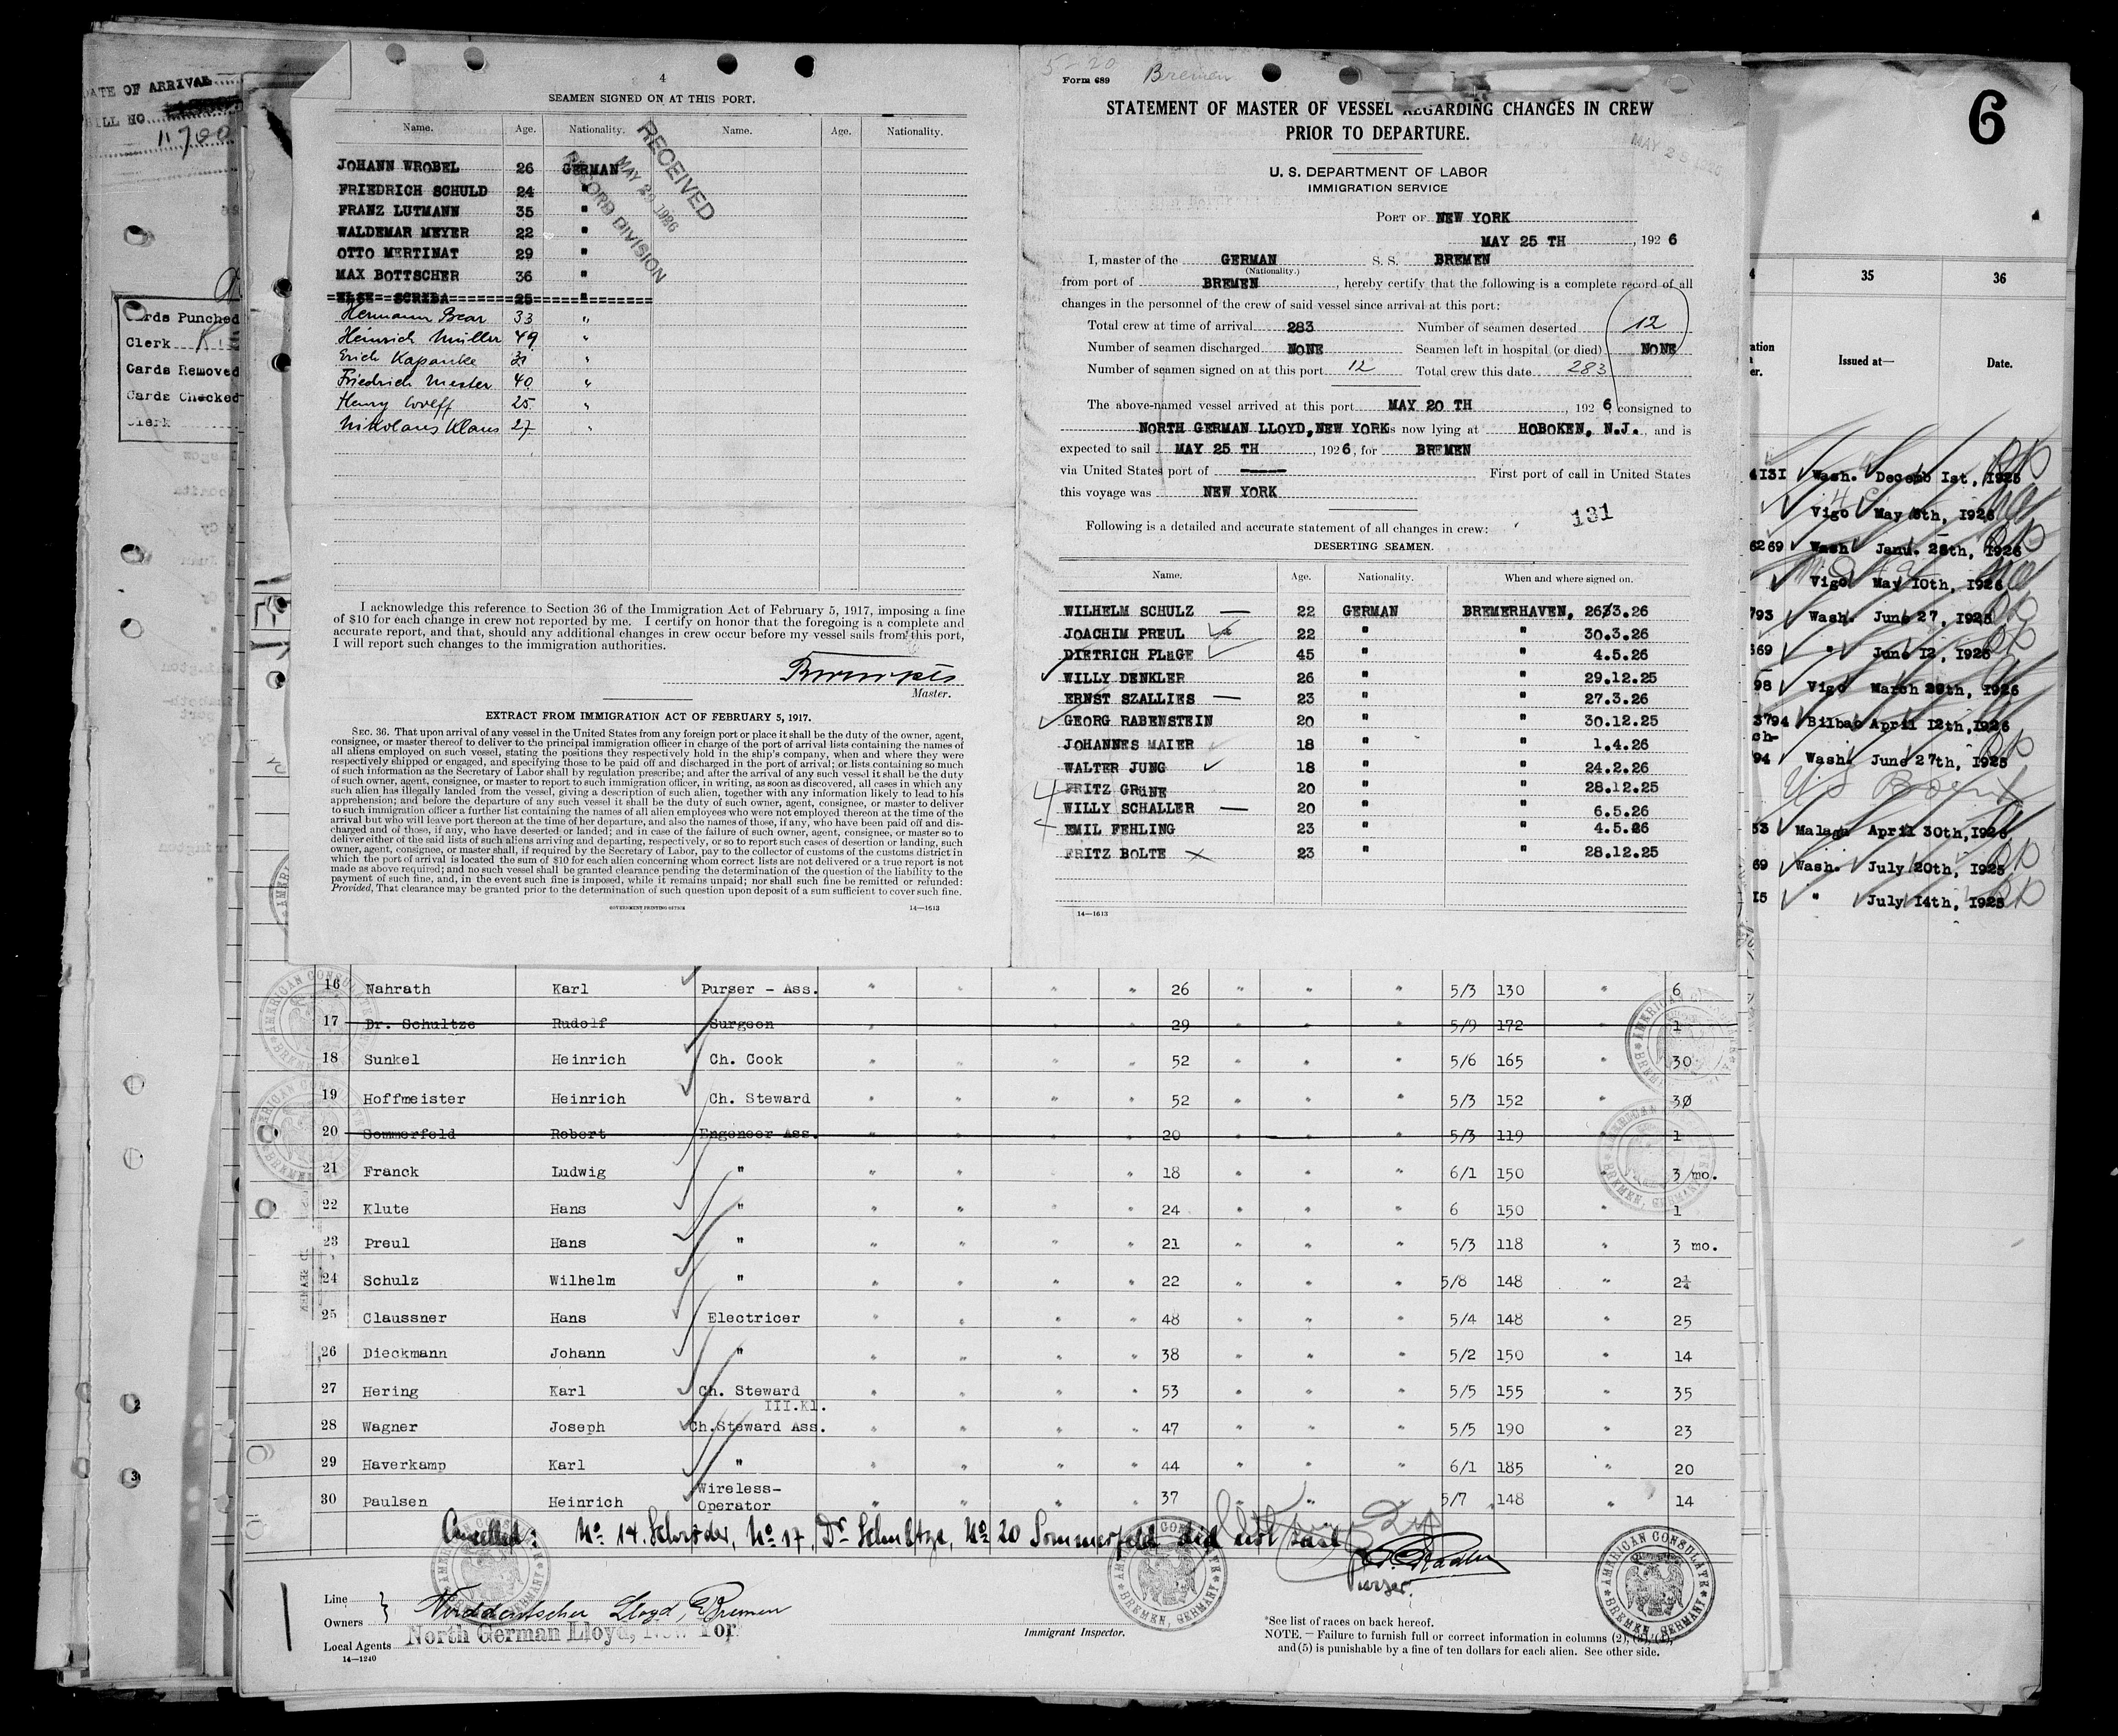 DATE OF ARRIVAL
BILL NO.
11700
Cards Punched
Clerk
Cards Removed
Cards Checked
Clerk
4
SEAMEN SIGNED ON AT THIS PORT.
Name. Age. Nationality. Name. Age. Nationality.
JOHANN WROBEL 26 GERMAN
FRIEDRICH SCHULD 24 "
FRANZ LUTMANN 35 "
WALDEMAR MEYER 22 "
OTTO MERTINAT 29 "
MAX BOTTSCHER 36 "
ELSE SCRIBA 25 "
Hermann Bear 33 "
Heinrich Müller 49 "
Erich Kapanke 31 "
Friedrich Mester 40 "
Henry Wolff 25 "
Nikolaus Klaus 27 "
RECEIVED
MAY 29 1926
RECORD DIVISION
I acknowledge this reference to Section 36 of the Immigration Act of February 5, 1917, imposing a fine
of $10 for each change in crew not reported by me. I certify on honor that the foregoing is a complete and
accurate report, and that, should any additional changes in crew occur before my vessel sails from this port,
I will report such changes to the immigration authorities.
Master.
EXTRACT FROM IMMIGRATION ACT OF FEBRUARY 5, 1917.
SEC. 36. That upon arrival of any vessel in the United States from any foreign port or place it shall be the duty of the owner, agent,
consignee, or master thereof to deliver to the principal immigration officer in charge of the port of arrival lists containing the names of
all aliens employed on such vessel, stating the positions they respectively hold in the ship's company, when and where they were
respectively shipped or engaged, and specifying those to be paid off and discharged in the port of arrival; or lists containing so much
of such information as the Secretary of Labor shall by regulation prescribe; and after the arrival of any such vessel it shall be the duty
of such owner, agent, consignee, or master to report to such immigration officer, in writing, as soon as discovered, all cases in which any
such alien has illegally landed from the vessel, giving a description of such alien, together with any information likely to lead to his
apprehension; and before the departure of any such vessel it shall be the duty of such owner, agent, consignee, or master to deliver
to such immigration officer a further list containing the names of all alien employees who were not employed thereon at the time of the
arrival but who will leave port thereon at the time of her departure, and also the names of those, if any, who have been paid off and dis-
charged and of those, if any, who have deserted or landed; and in case of the failure of such owner, agent, consignee, or master so to
deliver either of the said lists of such aliens arriving and departing, respectively, or so to report such cases of desertion or landing, such
owner, agent, consignee, or master shall, if required by the Secretary of Labor, pay to the collector of customs of the customs district in
which the port of arrival is located the sum of $10 for each alien concerning whom correct lists are not delivered or a true report is not
made as above required; and no such vessel shall be granted clearance pending the determination of the question of the liability to the
payment of such fine, and, in the event such fine is imposed, while it remains unpaid; nor shall such fine be remitted or refunded:
Provided, That clearance may be granted prior to the determination of such question upon deposit of a sum sufficient to cover such fine.
GOVERNMENT PRINTING OFFICE 14—1613
5-20 Bremen
Form 689
STATEMENT OF MASTER OF VESSEL REGARDING CHANGES IN CREW
PRIOR TO DEPARTURE.
U. S. DEPARTMENT OF LABOR
IMMIGRATION SERVICE
PORT OF NEW YORK
MAY 25 TH, 1926
I, master of the GERMAN S. S. BREMEN
(Nationality.)
from port of BREMEN, hereby certify that the following is a complete record of all
changes in the personnel of the crew of said vessel since arrival at this port:
Total crew at time of arrival 283 Number of seamen deserted 12
Number of seamen discharged NONE Seamen left in hospital (or died) NONE
Number of seamen signed on at this port 12 Total crew this date 283
The above-named vessel arrived at this port MAY 20 TH, 1926, consigned to
NORTH GERMAN LLOYD, NEW YORK is now lying at HOBOKEN, N.J., and is
expected to sail MAY 25 TH, 1926, for BREMEN
via United States port of —— First port of call in United States
this voyage was NEW YORK
131
Following is a detailed and accurate statement of all changes in crew:
DESERTING SEAMEN.
Name. Age. Nationality. When and where signed on.
WILHELM SCHULZ — 22 GERMAN BREMERHAVEN, 26.3.26
JOACHIM PREUL 22 " " 30.3.26
DIETRICH PLAGE 45 " " 4.5.26
WILLY DENKLER 26 " " 29.12.25
ERNST SZALLIES — 23 " " 27.3.26
GEORG RABENSTEIN 20 " " 30.12.25
JOHANNES MAIER 18 " " 1.4.26
WALTER JUNG 18 " " 24.2.26
FRITZ GRÜNE 20 " " 28.12.25
WILLY SCHALLER — 20 " " 6.5.26
EMIL FEHLING 23 " " 4.5.26
FRITZ BOLTE 23 " " 28.12.25
14—1613
6
35 36
Issued at— Date.
4131 Wash. Decemb 1st, 1925
Vigo May 8th, 1926
6269 Wash Janu. 28th, 1926
Vigo May 10th, 1926
793 Wash. June 27, 1925
369 " June 12, 1925
98 Vigo March 29th, 1926
3794 Bilbao April 12th, 1926
ch-
94 Wash June 27th, 1925
US Born
53 Malaga April 30th, 1926
69 Wash. July 20th, 1925
15 " July 14th, 1925
16 Nahrath Karl Purser - Ass. " " " " 26 " " " 5/3 130 " 6
17 Dr. Schultze Rudolf Surgeon " 29 5/9 172 1
18 Sunkel Heinrich Ch. Cook " " " " 52 " " " 5/6 165 " 30
19 Hoffmeister Heinrich Ch. Steward " " " " 52 " " " 5/3 152 " 30
20 Sommerfeld Robert Engeneer Ass. 20 5/3 119 " 1
21 Franck Ludwig " " " " 18 " " " 6/1 150 " 3 mo.
22 Klute Hans " " " " " 24 " " " 6 150 " 1
23 Preul Hans " " " " " 21 " " " 5/3 118 " 3 mo.
24 Schulz Wilhelm " " " " " 22 " " " 5/8 148 " 2¼
25 Claussner Hans Electricer " " " " 48 " " " 5/4 148 " 25
26 Dieckmann Johann " " " " " 38 " " " 5/2 150 " 14
27 Hering Karl Ch. Steward " " " " 53 " " " 5/5 155 " 35
III.Kl.
28 Wagner Joseph Ch.Steward Ass. " " " " 47 " " " 5/5 190 " 23
29 Haverkamp Karl " " " " " 44 " " " 6/1 185 " 20
30 Paulsen Heinrich Wireless-Operator " " " " 37 " " " 5/7 148 " 14
Cancelled: No 14. Schröder, No 17. Dr Schultze, No 20 Sommerfeld did not sail
Purser.
Line
Owners } Norddeutscher Lloyd, Bremen
Local Agents North German Lloyd, New York
14—1240
Immigrant Inspector.
*See list of races on back hereof.
NOTE.—Failure to furnish full or correct information in columns (2), (3), (4),
and (5) is punishable by a fine of ten dollars for each alien. See other side.
AMERICAN CONSULATE
BREMEN, GERMANY